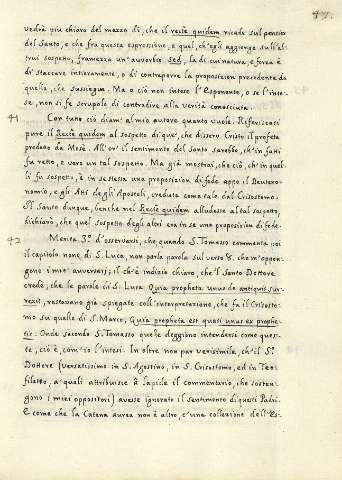 47.
vedrà più chiaro del mezzo dì, che il recte quidem ricade sul pensier
del Santo, e che fra questa espressione, e quel, ch'egli aggiunge sull'al-
trui sospetto, framezza un'avverbio sed, la di cui natura, e forza è
di staccare intieramente, o di contraporre la proposizion precedente da
quella, che sussiegue. Ma o ciò non intese l'Esponente, o se l'inte-
se, non si fe scrupolo di contradire alla verità conosciuta.
41 Con tutto ciò diam' al mio autore quanto vuole. Riferiscasi
pure il Recte quidem al sospetto di que', che dissero Cristo il profeta
predetto da Mosè. All'or' il sentimento del Santo sarebbe, ch'in fatti
fu retto, e vero un tal sospetto. Ma già mostrai, che ciò, ch'in quel-
li fu sospetto, è in se stesso una proposizion di fede appo il Deutero-
nomio, e gli Atti degli Apostoli, creduta come tale dal Crisostomo.
Il Santo dunque, benche nel Recte quidem alludesse al tal sospetto,
dichiarò, che quel sospetto degli altri era in se una proposizion di fede.
42 Merita 3.° d'osservarsi, che quando S. Tomasso commenta poi
il capitolo nono di S. Luca, non parla parola sul verso 8. che m'oppon-
gono i miei avversarj; il ch'è indizio chiaro, che'l Santo Dottore
crede, che le parole di S. Luca Quia propheta unus de antiquis sur-
rexit, restavano già spiegate coll'interpretazione, che fa il Crisosto-
mo su quelle di S. Marco, Quia propheta est quasi unus ex prophe-
tis: Onde secondo S. Tomasso quelle deggiono intendersi come ques-
te, cioè, com'io l'intesi. In oltre non par verisimile, ch'il S.°
Dottore (versatissimo in S. Agostino, in S. Grisostomo, ed in Teo-
filatto, a' quali attribuisce il commentario, che sosten-
gono i miei oppositori) avesse ignorato il sentimento di questi Padri.
E come che la Catena aurea non è altro, c'una collezione dell'Es-